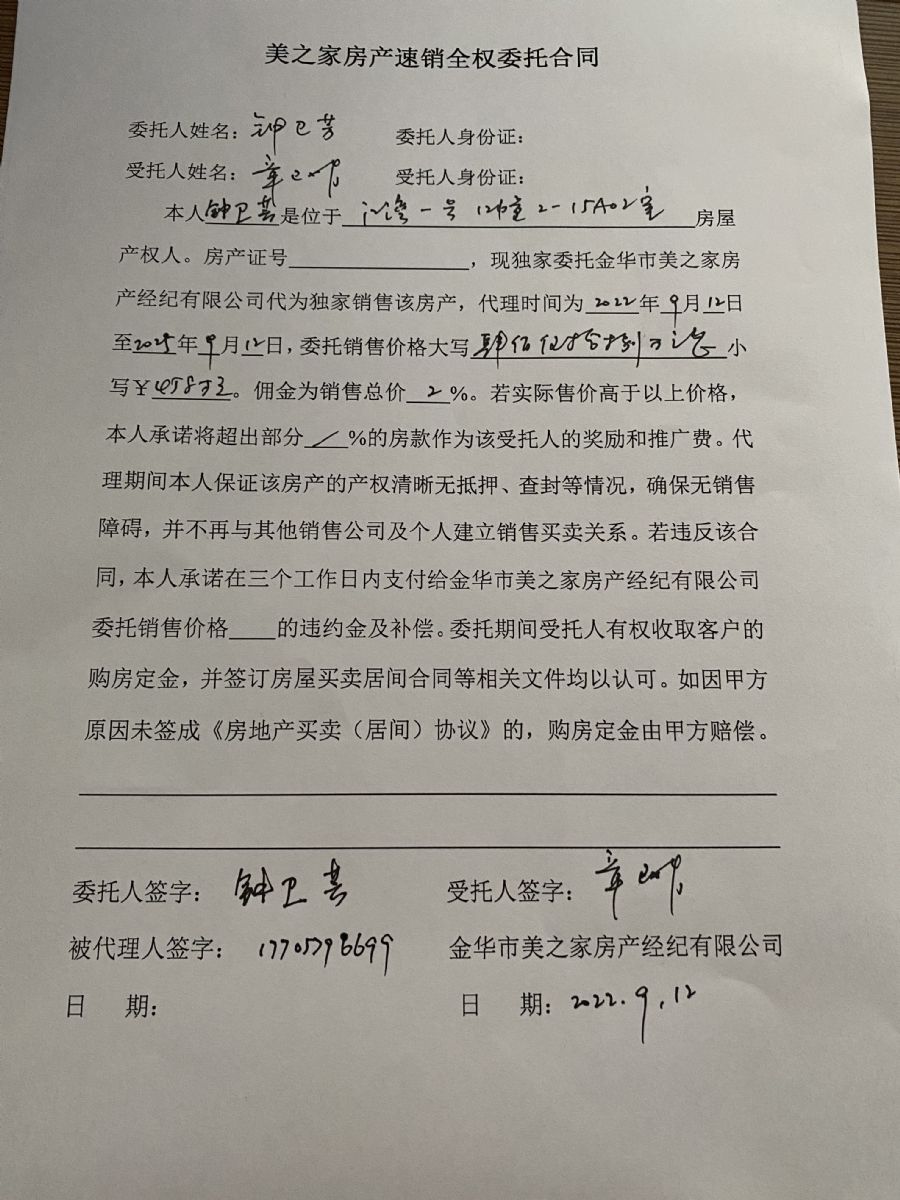 美之家房产速销全权委托合同
委托人姓名：钟卫芳 委托人身份证：
受托人姓名：章 受托人身份证：
本人钟卫芳是位于江湾一号12幢2-15A02室房屋
产权人。房产证号________，现独家委托金华市美之家房
产经纪有限公司代为独家销售该房产，代理时间为2022年9月12日
至2025年9月12日，委托销售价格大写肆佰伍拾捌万元小
写￥458万元。佣金为销售总价2%。若实际售价高于以上价格，
本人承诺将超出部分/%的房款作为该受托人的奖励和推广费。代
理期间本人保证该房产的产权清晰无抵押、查封等情况，确保无销售
障碍，并不再与其他销售公司及个人建立销售买卖关系。若违反该合
同，本人承诺在三个工作日内支付给金华市美之家房产经纪有限公司
委托销售价格____的违约金及补偿。委托期间受托人有权收取客户的
购房定金，并签订房屋买卖居间合同等相关文件均以认可。如因甲方
原因未签成《房地产买卖（居间）协议》的，购房定金由甲方赔偿。
委托人签字：钟卫芳 受托人签字：章
被代理人签字：17705798699 金华市美之家房产经纪有限公司
日 期： 日 期：2022.9.12